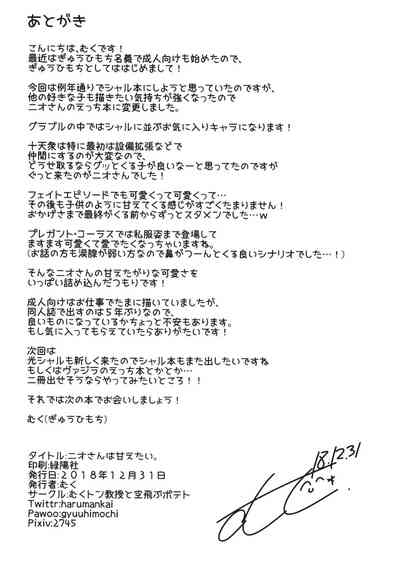 あとがき
こんにちは、むくです！
最近はぎゅうひもち名義で成人向けも始めたので、
ぎゅうひもちとしてははじめまして！
今回は例年通りでシャル本にしようと思っていたのですが、
他の好きな子も描きたい気持ちが強くなったので
ニオさんのえっち本に変更しました。
グラブルの中ではシャルに並ぶお気に入りキャラになります！
十天衆は特に最初は設備拡張などで
仲間にするのが大変なので、
どうせ取るならグッとくる子が良いなーと思ってたのですが
ぐっと来たのがニオさんでした！
フェイトエピソードでも可愛くって可愛くって…
その後も子供のように甘えてくる感じがすごくたまりません！
おかげさまで最終がくる前からずっとスタメンでした…w
プレガント・コーラスでは私服姿まで登場して
ますます可愛くて愛でたくなっちゃいますね。
(お話の方も涙腺が弱い方なので鼻がつーんとくる良いシナリオでした…！)
そんなニオさんの甘えたがりな可愛さを
いっぱい詰め込んだつもりです！
成人向けはお仕事でたまに描いていましたが、
同人誌で出すのは5年ぶりなので、
良いものになっているかちょっと不安もあります。
もし気に入ってもらえていたらありがたいです！
次回は
光シャルも新しく来たのでシャル本もまた出したいですね
もしくはヴァジラのえっち本とかとか…
二冊出せそうならやってみたいところ！！
それでは次の本でお会いしましょう！
むく(ぎゅうひもち)
タイトル:ニオさんは甘えたい。
印刷:緑陽社
発行日:2018年12月31日
発行者:むく
サークル:むくトン教授と空飛ぶポテト
Twittr:harumankai
Pawoo:gyuuhimochi
Pixiv:2745
18.12.31